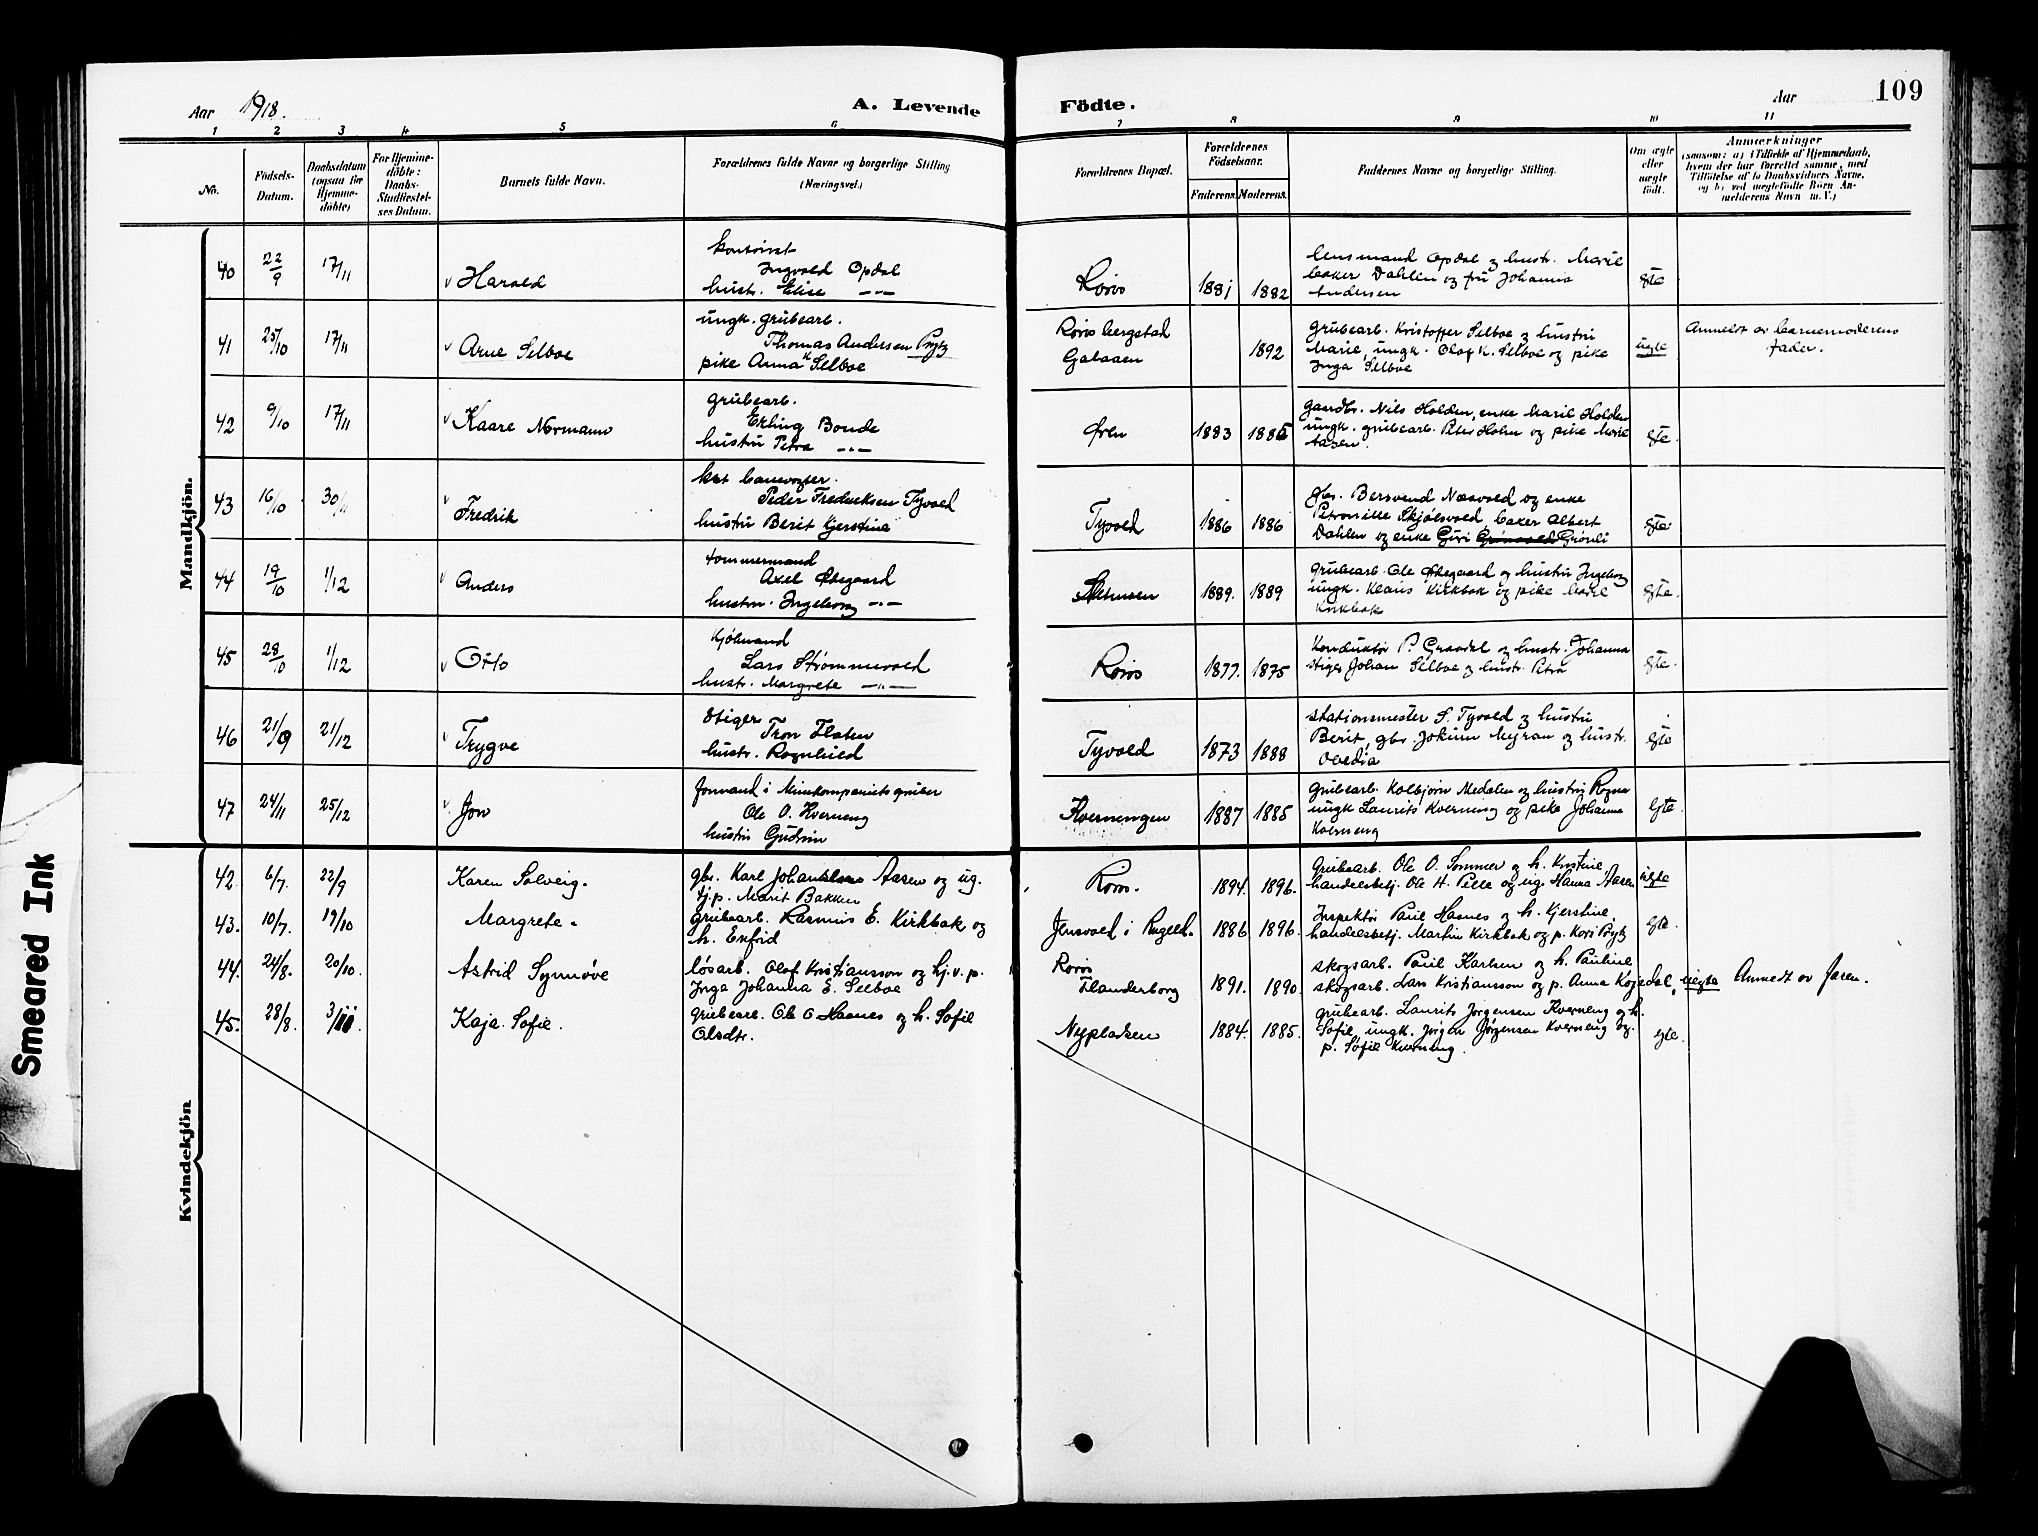 Aar 1918.
A. Levende
Födte.
Aar
109
1 2 3 4 5 6
7 8 9 10 11
No.
Födsels-
Datum.
Daabsdatum
(ogsaa for
Hjemme-
döbte)
For Hjemme-
döbte:
Daabs-
Stadfæstel-
ses Datum.
Barnets fulde Navn.
Forældrenes fulde Navne og borgerlige Stilling
(Næringsvei.)
Forældrenes Bopæl.
Forældrenes
Födselsaar.
Faderens. Moderens.
Faddernes Navne og borgerlige Stilling.
Om ægte
eller
uægte
födt.
Anmærkninger
(saasom: a) i Tilfælde af Hjemmedaab,
hvem der har forrettet samme, med
Tilföielse af to Daabsvidners Navne,
og b) ved uægtefödte Börn An-
melderens Navn m. V.)
Mandkjön.
40 22/9 17/11 Harald
kontorist
Ingvald Opdal
hust. Elise -"-
Røros 1881 1882
lensmand Opdal og hustr. Marie
baker Dahlen og fru Johanna
Andersen
egte
41 25/10 17/11 Arne Selboe
ungk. grubearb.
Thomas Andersen Prytz
pike Anna K Selboe
Røros bergstad
Galaaen
1892
Grubearb. Kristoffer Selboe og hustru
Marie, ungk. Olaf K. Selboe og pike
Inga Selboe
uegte
Anmeldt av barnemoderens
fader.
42 9/10 17/11 Kaare Normann
grubearb.
Erling Bonde
hustru Petra -"-
Øren 1883 1885
gaardbr. Nils Holden, enke Marie Holden
ungk. grubearb. Peter Holm og pike Marie
Aasen.
egte.
43 16/10 30/11 Fredrik
Peder Fredriksen Tyvold
hustru Berit Kjerstina
Tyvold 1886 1886
gbr. Bersvend Næsvold og enke
Petronille Skjølsvold, baker Albert
Dahlen og enke Guri Grønli
egte
44 19/10 1/12 Anders
tømmermand
Axel Ødegaard
hustru. Ingeborg -"-
1889. 1889
grubearb. Ole Ødegaard og hustru Ingeborg
ungk. Klaus Kirkbak og pike Marie
Kirkbak
egte.
45 28/10 1/12 Otto
Kjølmand
Lars Strømmevold
hustr. Margrete -"-
Røros 1877. 1875
Konduktør P. Graadal og hustr. Johanna
stiger Johan Selboe og hustr. Petra
egte.
46 21/9 21/12 Trygve
Stiger
Tron Flaten
hustr. Ragnhild
Tyvold 1873 1888
Stationsmester S. Tyvold og hustru
Berit, gbr. Jokum Myran og hustr.
Ovedia
egte
47 24/11 25/12 Jon
formand i Minekompaniets gruber
Ole O. Kverneng
hustru Gudrun
Kvernengen 1887 1885
grubearb. Kolbjørn Medalen og hustru Ragna
ungk Laurits Kverneng og pike Johanna
Kverneng
egte.
Kvindekjön
42. 6/7. 22/9 Karen Solveig.
gbr. Karl Aasen og ug.
tj.p. Marit Bakken
Røros. 1894. 1896.
Grubearb. Ole O. Sommer og h. Kristine,
handelsbetj. Ole H. Pelle og ug. Hanna Aasen
uegte
43. 10/7. 19/10 Margrete.
grubearb. Rasmus E. Kirkbak og
h. Enfrid
Jensvold i Rugeld. 1886 1896.
Inspektør Paul Haanes og h. Kjerstine,
handelsbetj. Martin Kirkbak og p. Kari Prytz
egte.
44. 24/8. 20/10. Astrid Synnøve
løsarb. Olof Kristiansson og hj.v.p.
Inga Johanna E. Selboe
Røros
Flanderborg
1891. 1890.
skogsarb. Paul Karlsen og h. Pauline,
skogsarb. Lars Kristiansson og p. Anna Kojedal,
uegte
Anmeldt av faren.
45. 28/8. 3/11. Kaja Sofie.
grubearb. Ole O Haanes og h. Sofie
Olsdtr.
Nypladsen 1884. 1885.
grubearb. Laurits Jørgensen Kverneng og h.
Sofie, ungk. Jørgen Jørgensen Kverneng og
p. Sofie Kverneng.
egte.
Smeared Ink